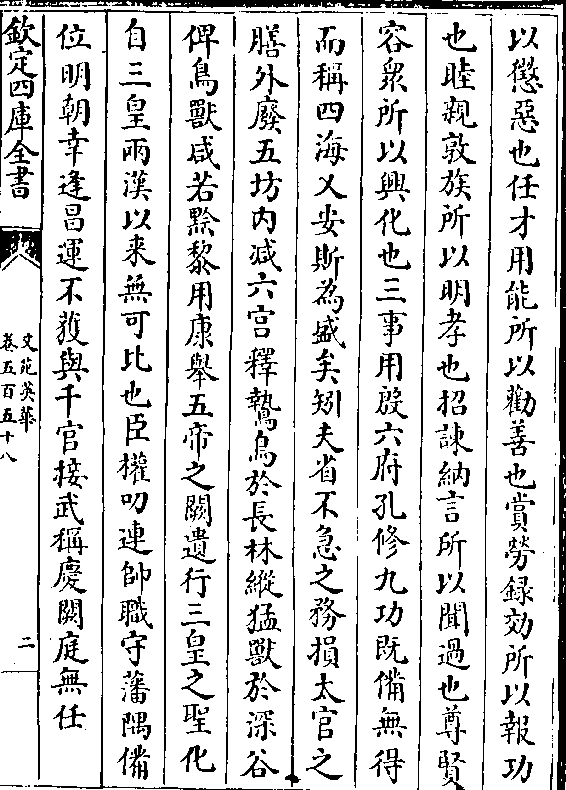 以懲惡也任才用能所以勸善也賞勞録効所以報功
也睦親敦族所以明孝也招諫納言所以聞過也尊賢
容衆所以興化也三事用殷六府孔修九功既備無得
而稱四海乂安斯為盛矣矧夫省不急之務損太官之
膳外廢五坊内减六宫釋鷙鳥於長林縱猛獸於深谷
俾鳥獸咸若黔黎用康舉五帝之闕遺行三皇之聖化
自三皇兩漢以来無可比也臣權叨連帥職守藩隅備
位明朝幸逢昌運不獲與千官接武稱慶闕庭無任
欽定四庫全書
文苑英華
卷五百五十八
二